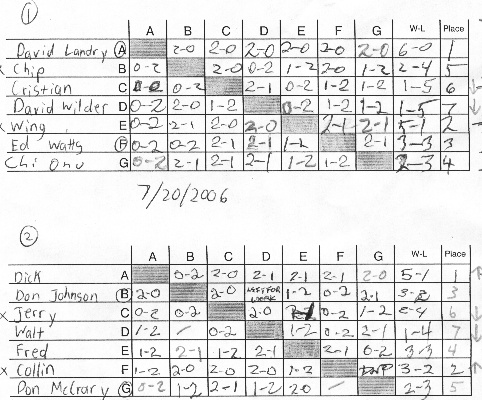 1
A B C D E F G W-L Place
David Landry A 2-0 2-0 2-0 2-0 2-0 2-0 6-0 1
x Chip B 0-2 2-0 0-2 1-2 2-0 1-2 2-4 5
Cristian C 0-2 2-1 0-2 1-2 1-2 1-5 6
David Wilder D 0-2 2-0 1-2 0-2 1-2 1-2 1-5 7
x Wing E 0-2 2-1 2-0 2-0 2-1 2-1 5-1 2
Ed Watts F 0-2 0-2 2-1 2-1 1-2 2-1 3-3 3
Chi Onu G 0-2 2-1 2-1 2-1 1-2 1-2 3-3 4
7/20/2006
2
A B C D E F G W-L Place
Dick A 0-2 2-0 2-1 2-1 2-1 2-0 5-1 1
Don Johnson B 2-0 2-0 1-2 0-2 2-1 3
x Jerry C 0-2 0-2 2-0 0-2 1-2 6
Walt D 1-2 0-2 1-2 0-2 2-1 1-4 7
Fred E 1-2 2-1 1-2 2-1 2-1 0-2 3-3 4
x Collin F 1-2 2-0 2-0 2-0 1-2 3-2 2
Don McCrary G 0-2 1-2 2-1 1-2 2-0 2-3 5